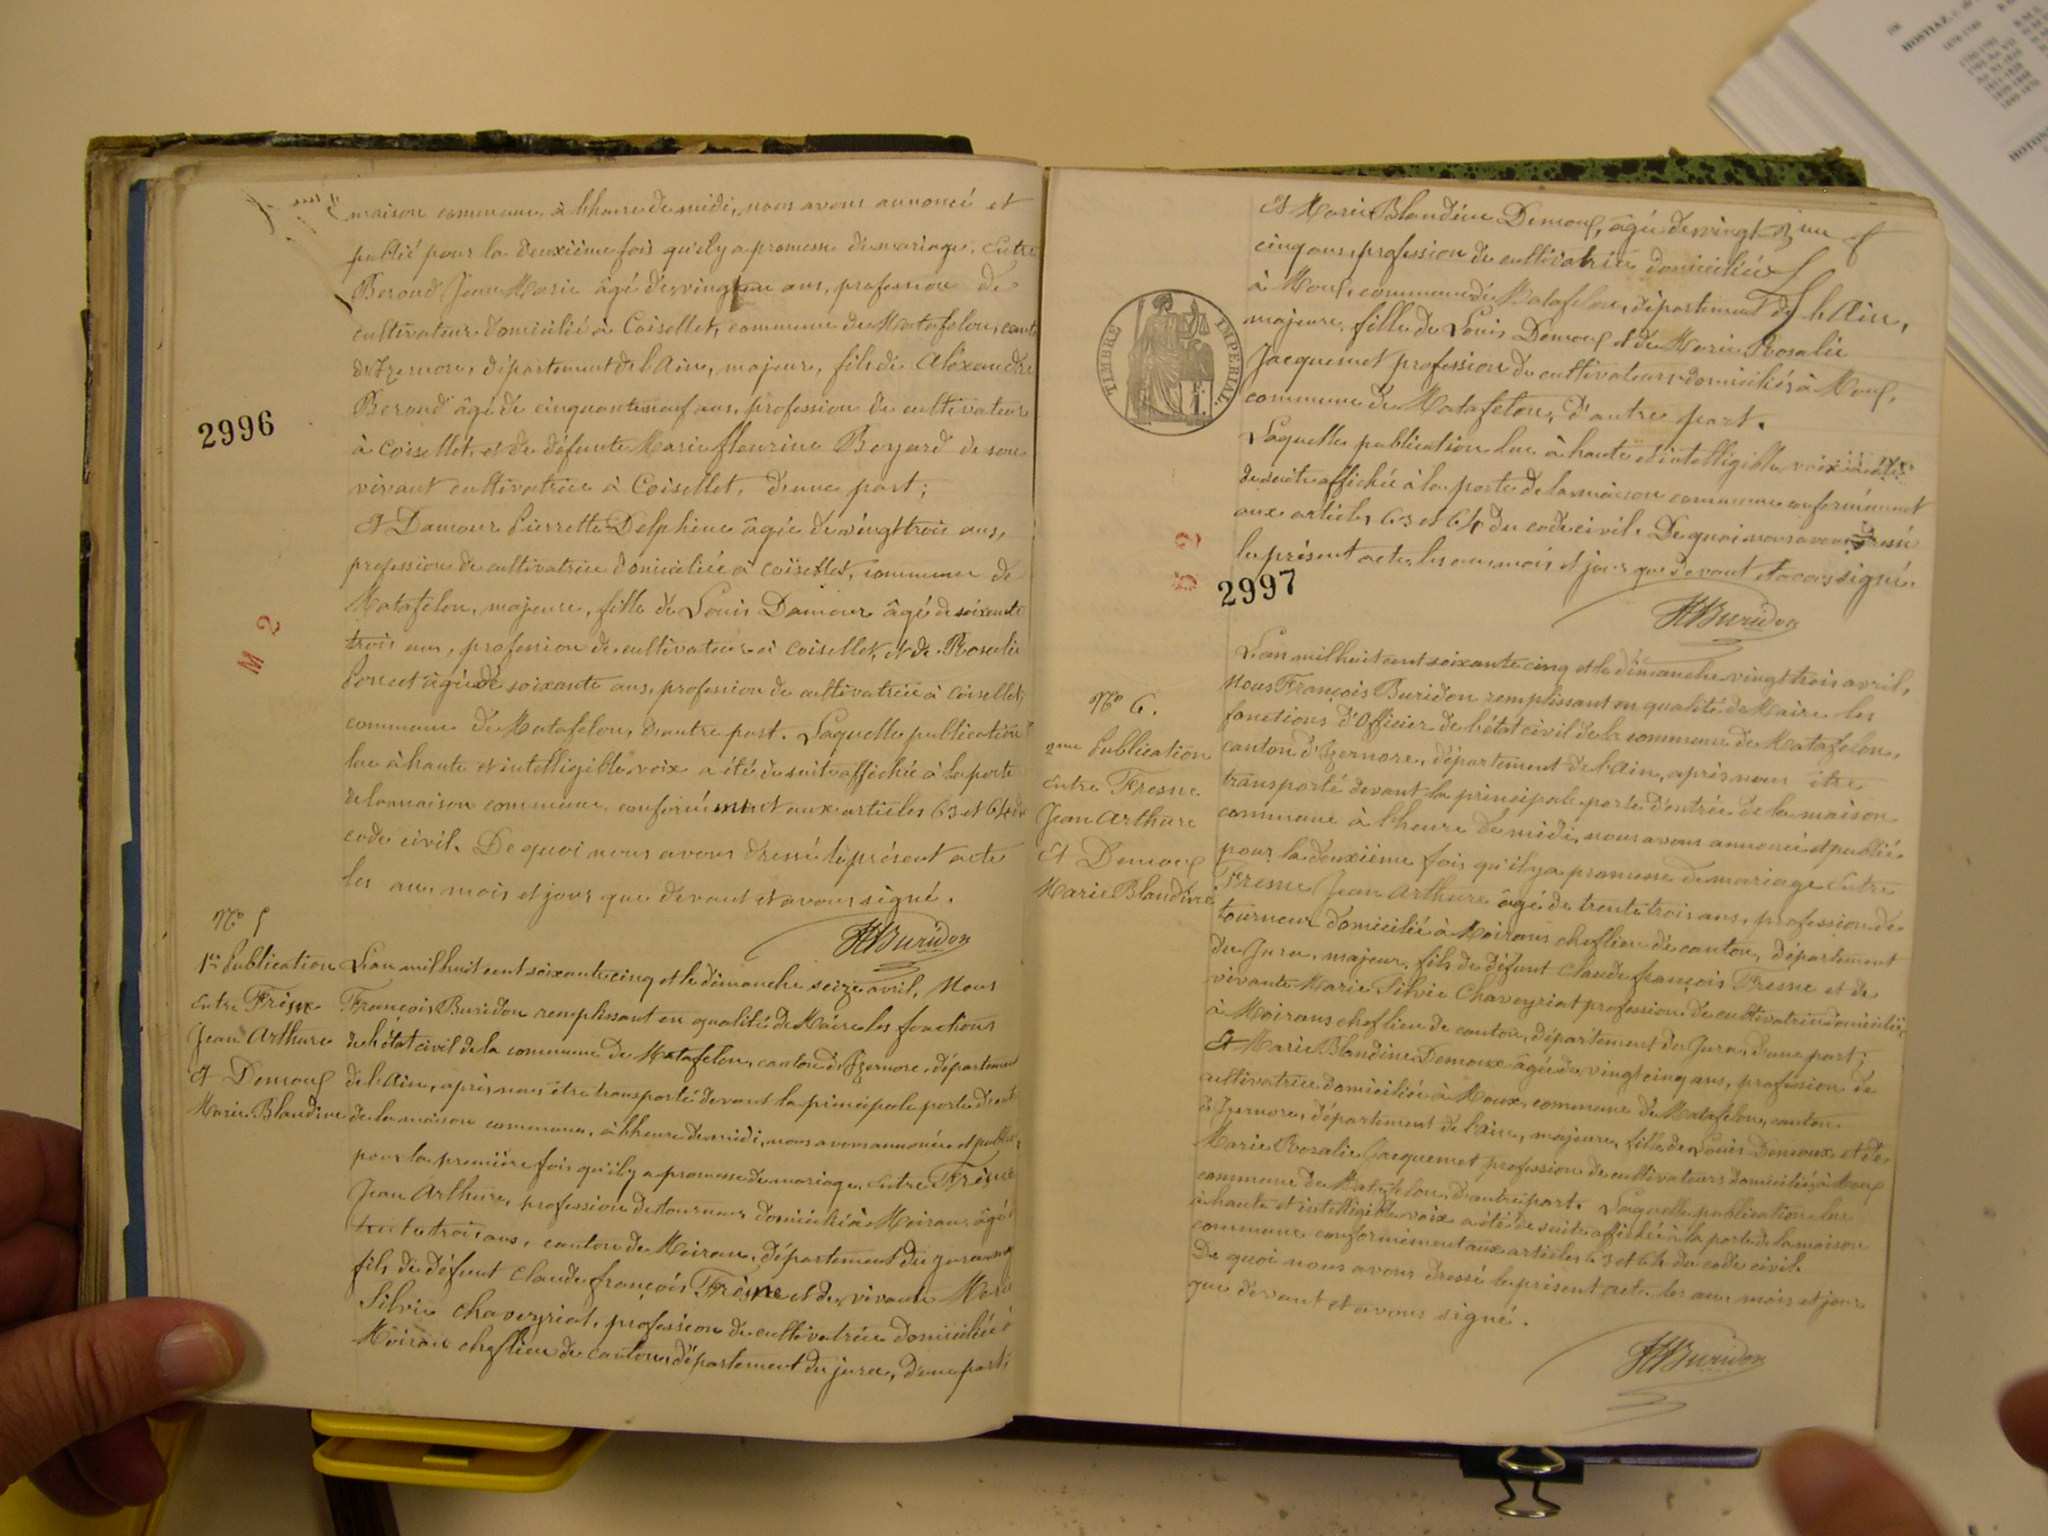 maison commune, à l'heure de midi, nous avons annoncé et
publié pour la deuxième fois qu'il y a promesse de mariage. Entre
Beroud Jean Marie âgé de ving ans, profession de
cultivateur domicilié à Coisellet, commune de Matafelon, canton
d'Izernore, département de l'Ain, majeur, fils de Alexandre
Beroud âgé de cinquante neuf ans, profession de cultivateur
à Coisellet, et de défunte Marie fleurine Boyard de son
vivant cultivatrice à Coisellet, d'une part;
Et Damour Pierrette Delphine âgée de vingt trois ans,
profession de cultivatrice domiciliée à Coisellet, commune de
Matafelon, majeure, fille de Louis Damour âgé de soixante
trois ans, profession de cultivateur à Coisellet, et de Rosalie
âgée de soixante ans, profession de cultivatrice à Coisellet,
commune de Matafelon, d'autre part. Laquelle publication
lue à haute et intelligible voix a été de suite affichée à la porte
de la maison commune, conformément aux articles 63 et 64 du
code civil. De quoi nous avons dressé le présent acte
les an, mois et jour que devant et avons signé.
Buridon
2996
M 2
No 5
1re Publication
Entre Frésne
Jean Arthure
Et Demoux
Marie Blandine
L'an mil huit cent soixante cinq et le dimanche seize avril, Nous
François Buridon remplissant en qualité de Maire les fonctions
de l'état civil de la commune de Matafelon, canton d'Izernore, département
de l'Ain, après nous être transporté devant la principale porte d'entrée
de la maison commune, à l'heure de midi, nous avons annoncé et publié,
pour la première fois qu'il y a promesse de mariage. Entre Frésne
Jean Arthure, profession de tourneur domicilié à Moiran, âgé
trente trois ans, canton de Moiran, département du jura
fils de défunt Claude françois Frésne et de vivante Marie
Silvie Chaveyriat, profession de cultivatrice domiciliée à
Moiran chef lieu de canton, département du jura, d'une part;
Et Marie Blandine Demoux, âgée de vingt
cinq ans, profession de cultivatrice domiciliée
à Moux, commune de Matafelon, département de l'Ain,
majeure, fille de Louis Demoux et de Marie Rosalie
Jacquemet profession de cultivateurs domiciliés à Moux,
commune de Matafelon, d'autre part.
Laquelle publication lue à haute et intelligible voix a été
de suite affichée à la porte de la maison commune conformément
aux articles 63 et 64 du code civil. De quoi nous avons dressé
le présent acte les an, mois et jour que devant et avons signé.
Buridon
TIMBRE IMPERIAL
2997
No 6.
2eme Publication
Entre Fresne
Jean Arthure
Et Demoux
Marie Blandine
L'an mil huit cent soixante cinq et le dimanche vingt trois avril,
Nous François Buridon remplissant en qualité de Maire les
fonctions d'Officier de l'état civil de la commune de Matafelon,
canton d'Izernore, département de l'Ain, après nous être
transporté devant la principale porte d'entrée de la maison
commune à l'heure de midi, nous avons annoncé et publié
pour la deuxième fois qu'il y a promesse de mariage Entre
Fresne Jean Arthure âgé de trente trois ans, profession de
tourneur domicilié à Moirans chef lieu de canton, département
du Jura, majeur, fils de défunt Claude françois Fresne et de
vivante Marie Silvie Chaveyriat profession de cultivatrice domiciliée
à Moirans chef lieu de canton, département du Jura, d'une part;
Et Marie Blandine Demoux âgée de vingt cinq ans, profession de
cultivatrice domiciliée à Moux, commune de Matafelon, canton
d'Izernore, département de l'Ain, majeure, fille de Louis Demoux et de
Marie Rosalie Jacquemet profession de cultivateurs domiciliés à Moux
commune de Matafelon, d'autre part. Laquelle publication lue
à haute et intelligible voix a été de suite affichée à la porte de la maison
commune conformément aux articles 63 et 64 du code civil.
De quoi nous avons dressé le présent acte les an, mois et jour
que devant et avons signé.
Buridon
HOSTIAZ